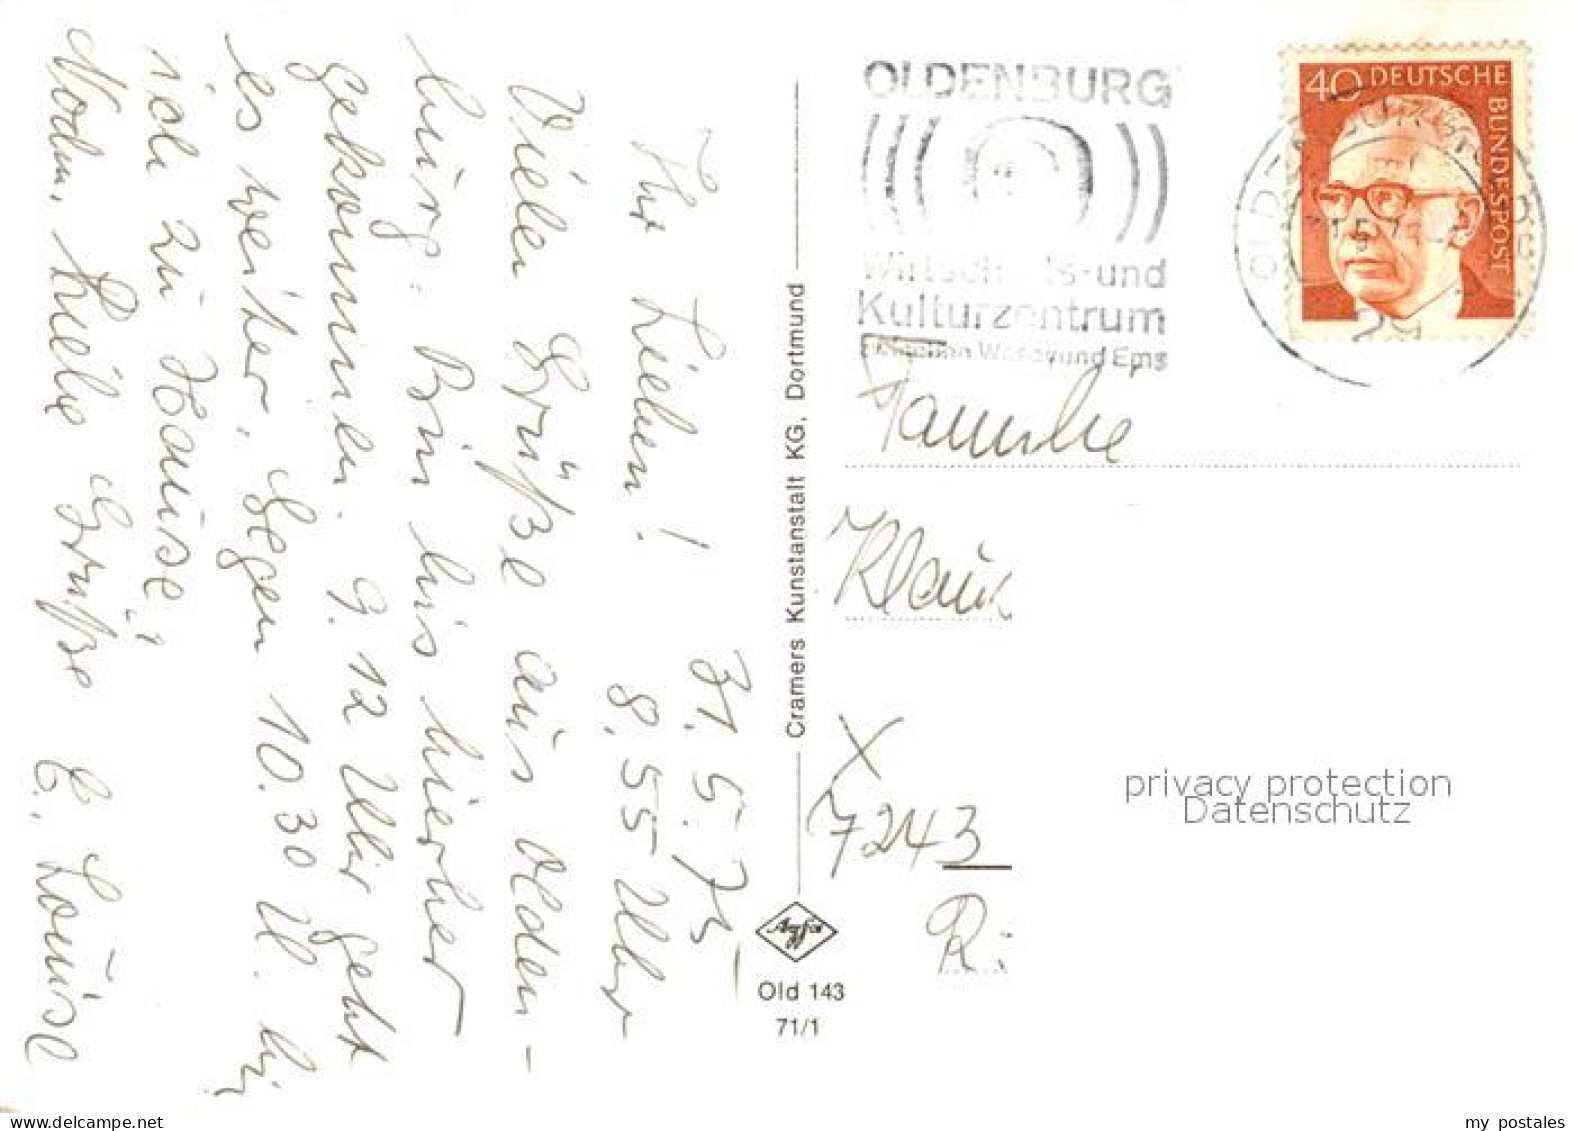 Ihr Lieben!
31.5.73
8.55 Uhr
Viele Grüße aus Olden-
burg. Bin bis hierher
gekommen. 9.12 Uhr geht
es weiter. Gegen 10.30 U. bin
ich zu Hause.
Nochm. liebe Grüße E. Louise
Cramers Kunstanstalt KG, Dortmund
Agfa
Old 143
71/1
OLDENBURG
Wirtschafts-und
Kulturzentrum
zwischen Weser und Ems
40 DEUTSCHE
BUNDESPOST
29
Familie
Klaus
7243
privacy protection
Datenschutz
my postales